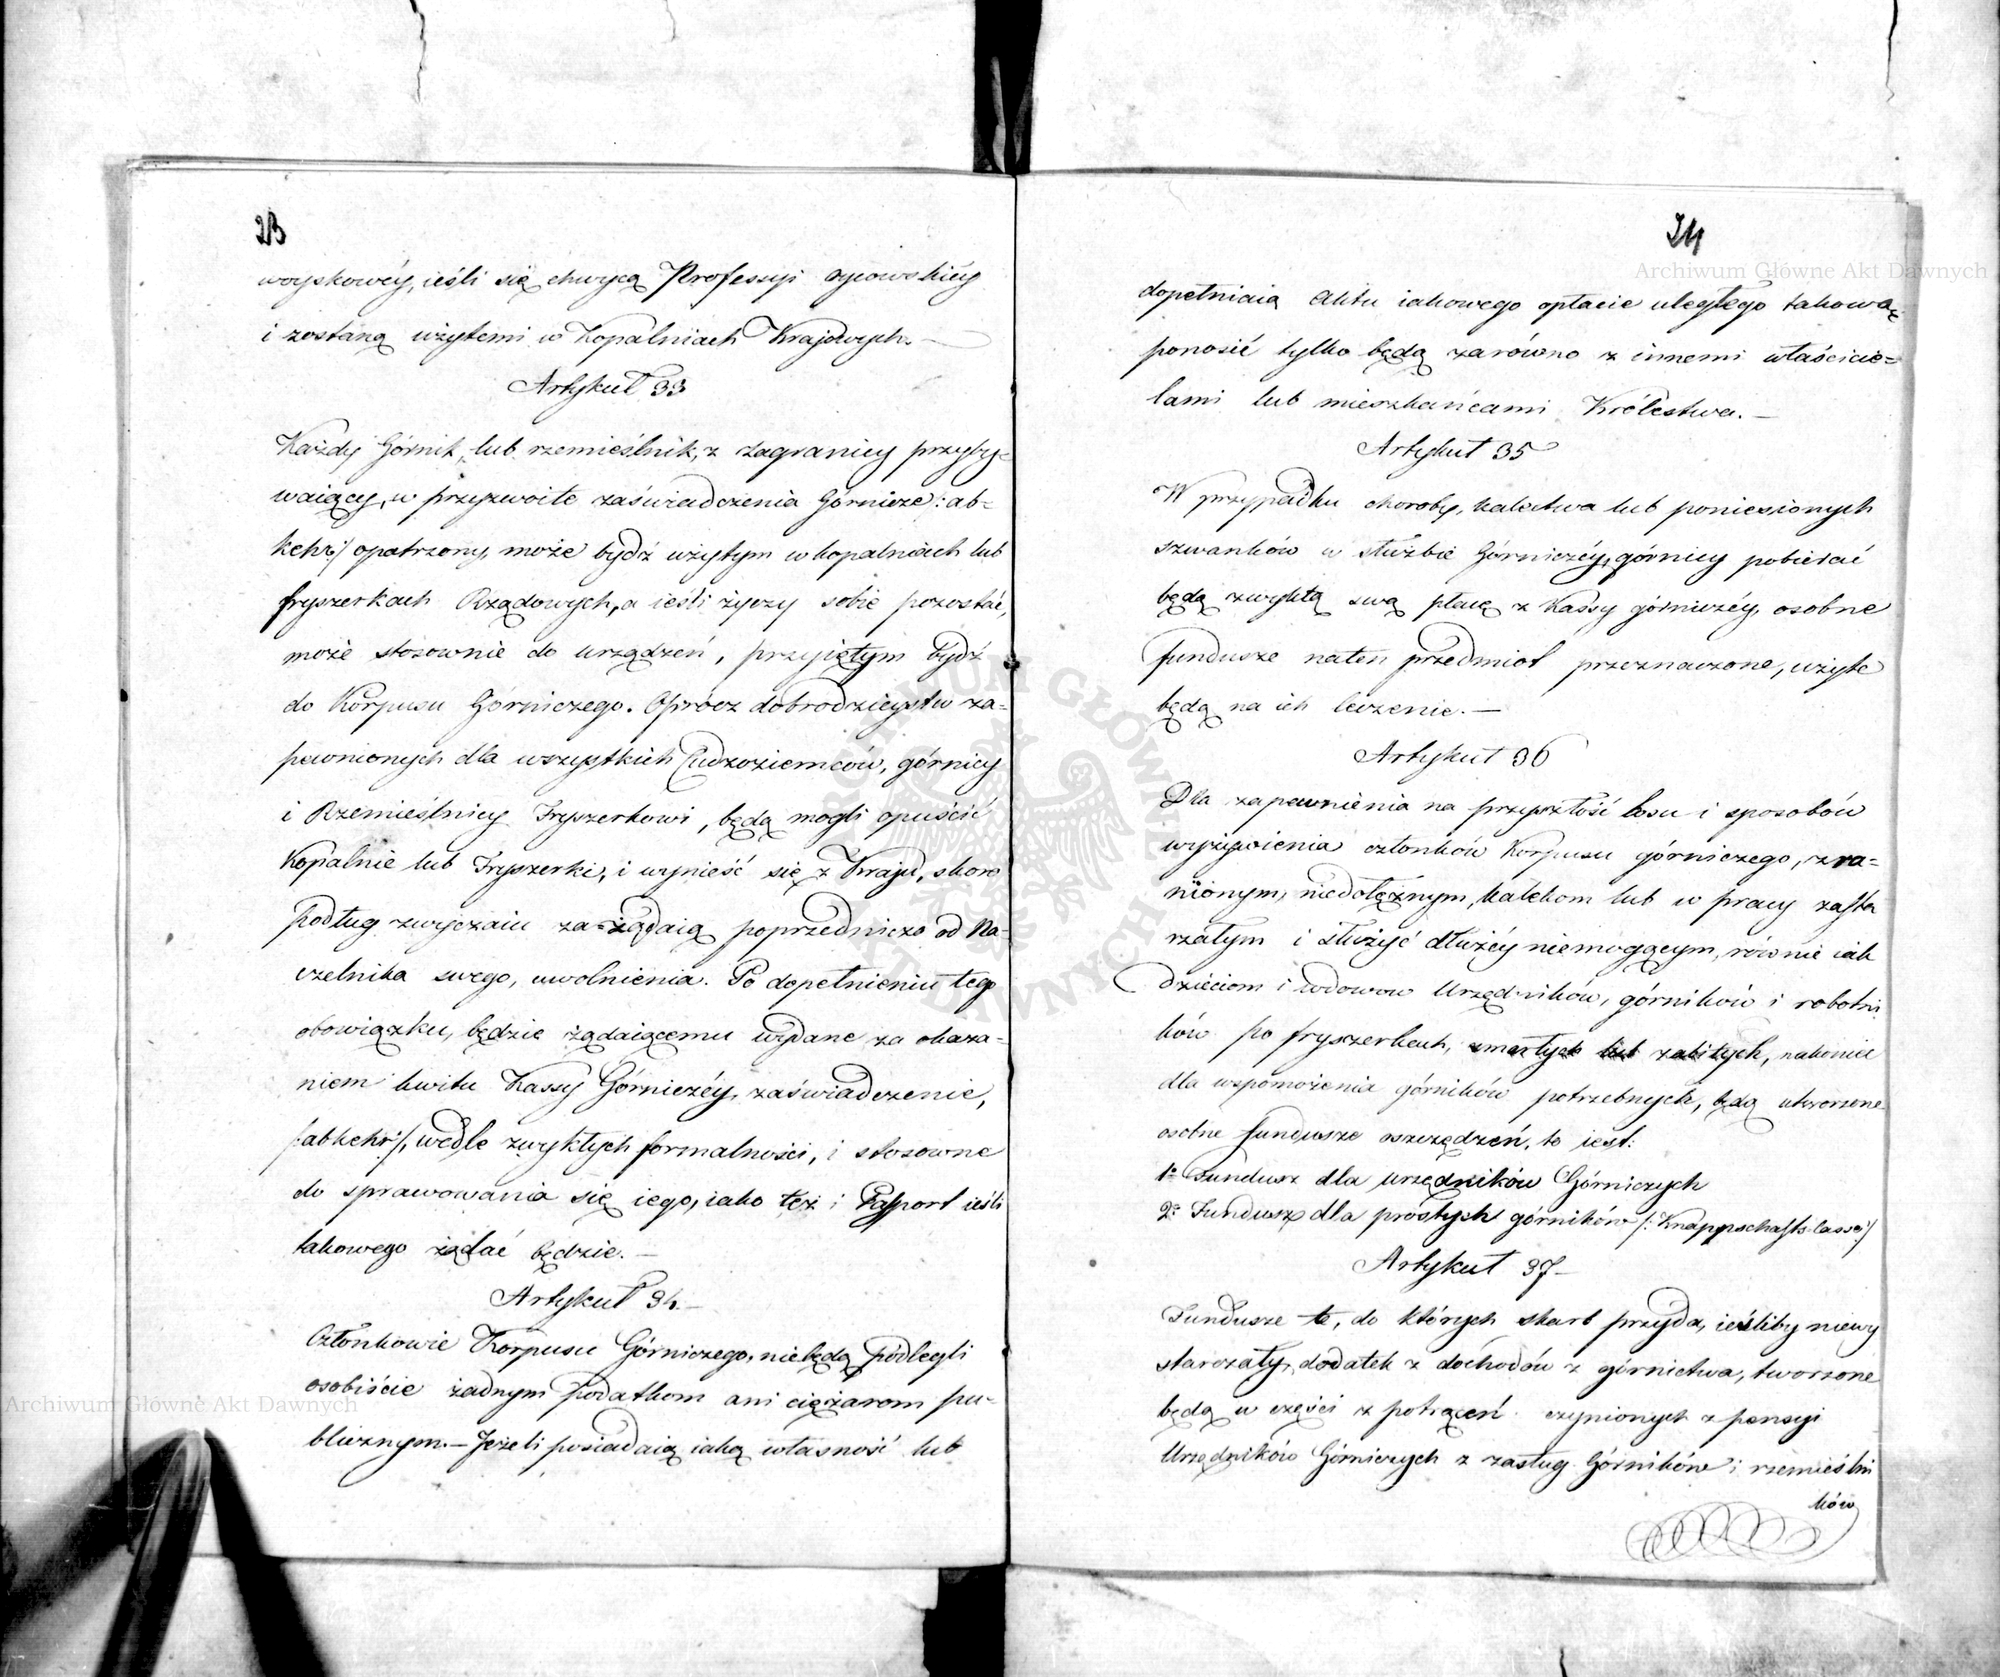 23
woyskowéy, ieśli się chwycą Professyi oycowskiéy
i zostaną użytemi w Kopalniach Krajowych. —
Artykuł 33
Każdy Górnik, lub rzemieślnik, z zagranicy przyby-
waiący, w przyzwoite zaświadczenia Górnicze /: ab-
kehr:/ opatrzony, może bydź użytym w kopalniach lub
fryszerkach Rządowych, a ieśli życzy sobie pozostać,
może stosownie do urządzeń, przyiętym bydź
do Korpusu Górniczego. Oprócz dobrodzieystw za-
pewnionych dla wszystkich Cudzoziemców, górnicy
i Rzemieślnicy Fryszerkowi, będą mogli opuścić
Kopalnie lub Fryszerki, i wynieść się z Kraju, skoro
podług zwyczaiu za-żądaią poprzedniczo od Na-
czelnika swego, uwolnienia. Po dopełnieniu tego
obowiązku, będzie żądaiącemu wydane za okaza-
niem kwitu Kassy Górniczéy, zaświadczenie,
/:abkehr:/, wedle zwykłych formalności, i stosowne
do sprawowania się iego, iako też i Passport ieśli
takowego żądać będzie. —
Artykuł 34. —
Członkowie Korpusu Górniczego, niebędą podlegli
osobiście żadnym podatkom ani ciężarom pu-
blicznym. — Jeżeli posiadaią iaką własność lub
24
dopełniaią Aktu iakowego opłacie uległego takową
ponosić tylko będą zarówno z innemi właścicie=
lami lub mieszkańcami Królestwa. —
Artykuł 35
W przypadku choroby, kalectwa lub poniesionych
szwanków w służbie Górniczéy, górnicy pobierać
będą zwykłą swą płacę z Kassy górniczéy, osobne
fundusze naten przedmiot przeznaczone, użyte
będą na ich leczenie. —
Artykuł 36
Dla zapewnienia na przyszłość losu i sposobów
wyżywienia członków Korpusu górniczego, zra=
nionym, niedołężnym, kalekom lub w pracy zasta
rzałym i służyć dłużéy niemogącym, równie iak
Dzieciom i wdowom Urzędników, górników i robotni
ków po fryszerkach, zmarłych lub zabitych, nakoniec
dla wspomożenia górników potrzebnych, będą utworzone
osobne fundusze oszczędzeń, to iest:
1o Fundusz dla urzędników Górniczych
2o Fundusz dla prostych górników /: Knappschafts-Casse:/
Artykuł 37 —
Fundusze te, do których skarb przyda, ieśliby niewy
starczały, dodatek z dochodów z górnictwa, tworzone
będą w części z potrąceń czynionych z pensyi
Urzędników Górniczych z zasług Górników i rzemieślni
ków
Archiwum Główne Akt Dawnych
Archiwum Główne Akt Dawnych
ARCHIWUM GŁÓWNE AKT DAWNYCH